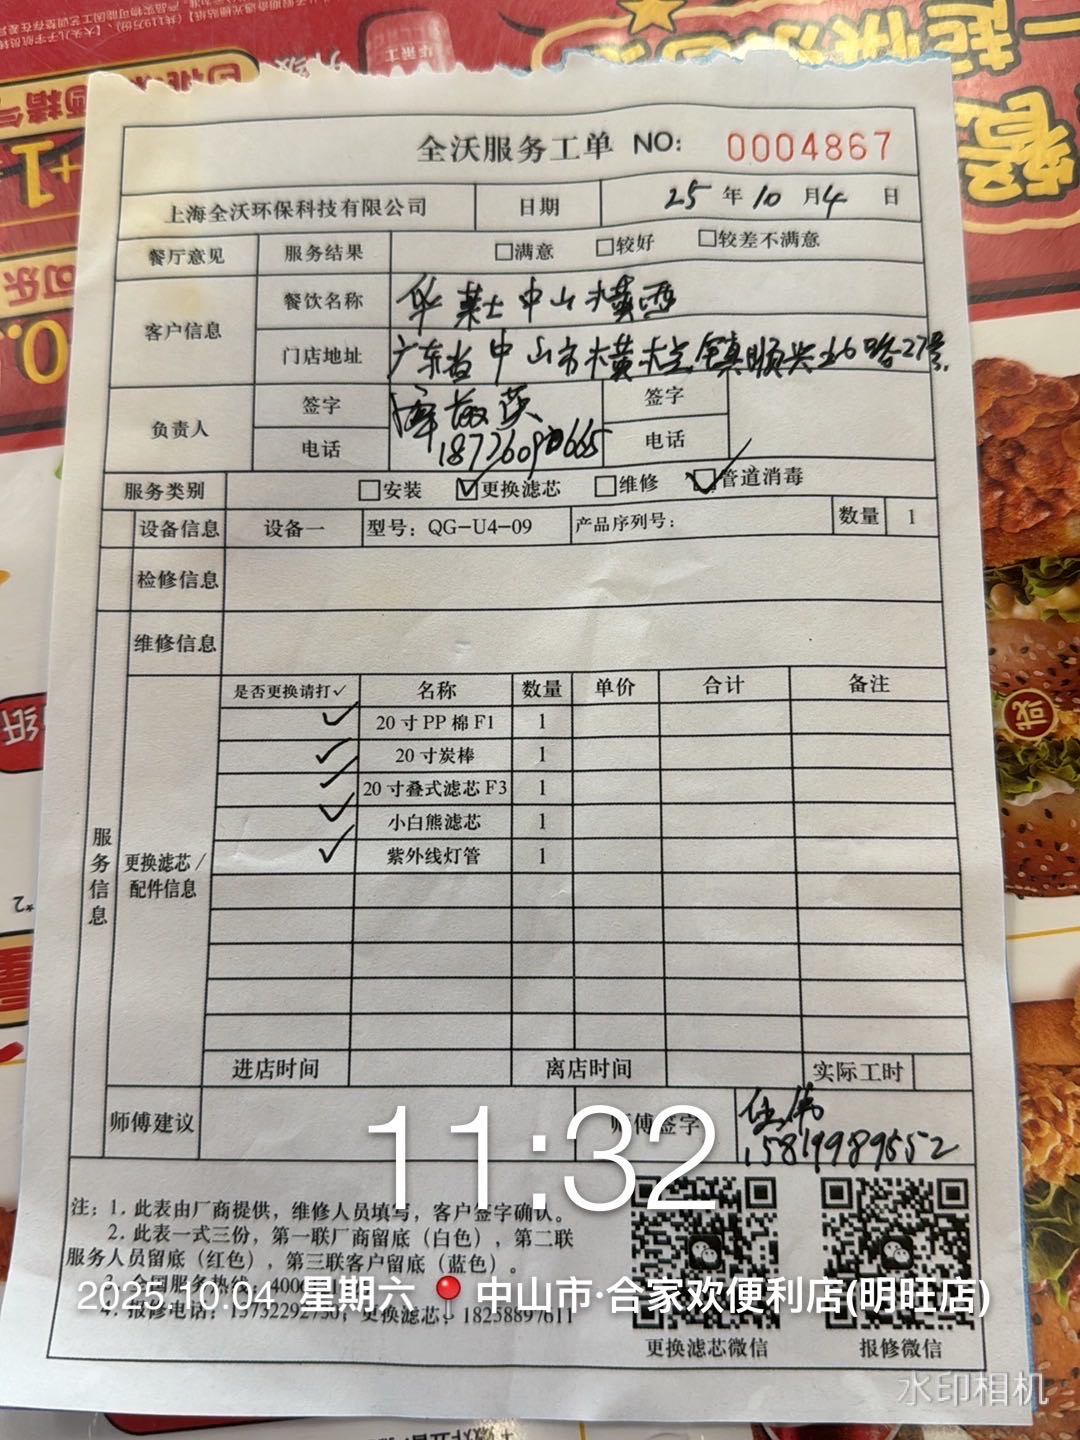 全沃服务工单 NO: 0004867
上海全沃环保科技有限公司 日期 25 年 10 月 4 日
餐厅意见 服务结果 □满意 □较好 □较差不满意
客户信息 餐饮名称 华莱士中山横西
门店地址 广东省中山市横栏镇顺兴北路27号
负责人 签字 签字
电话 电话
服务类别 □安装 ☑更换滤芯 □维修 ☑管道消毒
设备信息 设备一 型号: QG-U4-09 产品序列号: 数量 1
检修信息
维修信息
服务信息
更换滤芯/配件信息
是否更换请打✓ 名称 数量 单价 合计 备注
✓ 20寸PP棉F1 1
✓ 20寸炭棒 1
✓ 20寸叠式滤芯F3 1
✓ 小白熊滤芯 1
✓ 紫外线灯管 1
进店时间 离店时间 实际工时
师傅建议 师傅签字 15819989552
11:32
注: 1. 此表由厂商提供, 维修人员填写, 客户签字确认。
2. 此表一式三份, 第一联厂商留底 (白色), 第二联
服务人员留底 (红色), 第三联客户留底 (蓝色)。
3. 全国服务热线: 400
4. 报修电话: 13732292750, 更换滤芯: 18258897611
2025.10.04 星期六 中山市·合家欢便利店(明旺店)
更换滤芯微信 报修微信
水印相机
或